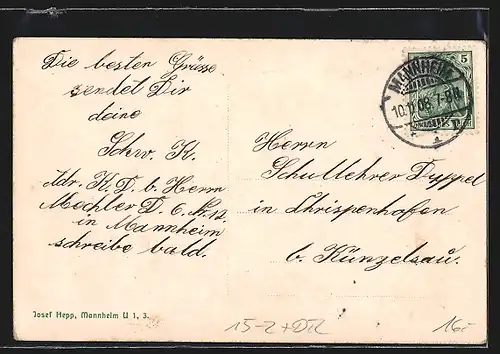 Die besten Grüsse
sendet Dir
deine
Schw. K.
Adr. K. D. b. Herrn
Mechler D. 6. Nr. 12.
in Mannheim
schreibe bald.
Josef Hepp, Mannheim U 1, 3.
5
MANNHEIM
10.11.08. 7-8
Herrn
Schullehrer Duppel
in Chrispenhofen
b. Künzelsau.
15-2
16.-